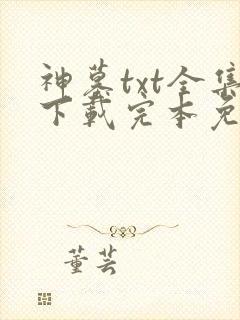 神墓txt全集
下载完本免
董芸